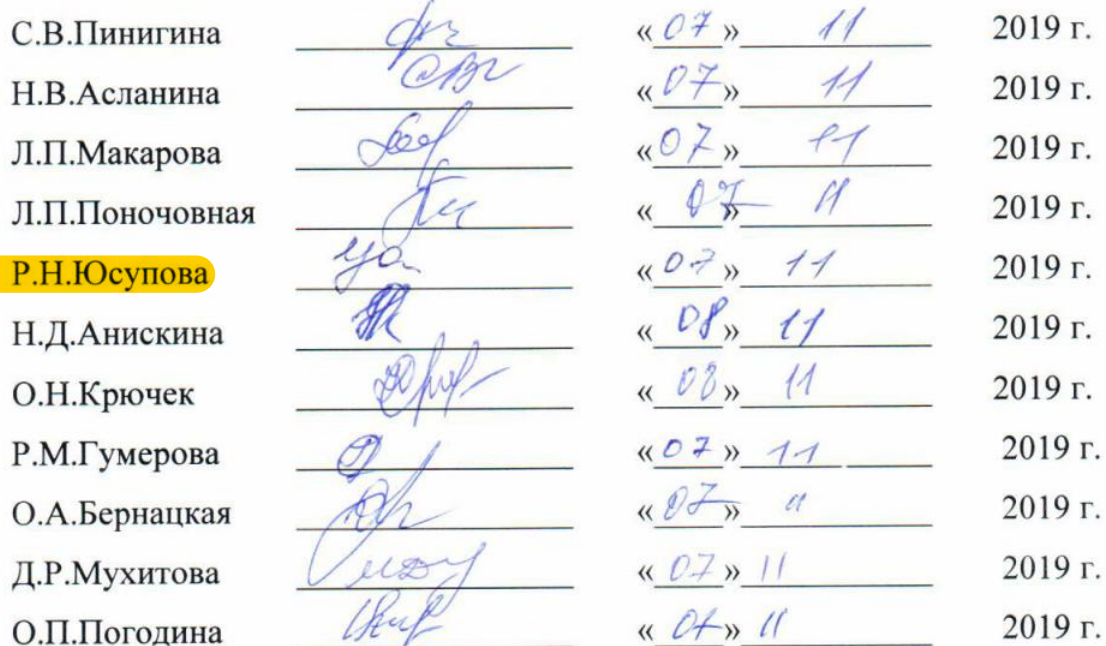 С.В.Пинигина «07» 11 2019 г.
Н.В.Асланина «07» 11 2019 г.
Л.П.Макарова «07» 11 2019 г.
Л.П.Поночовная «07» 11 2019 г.
Р.Н.Юсупова «07» 11 2019 г.
Н.Д.Анискина «08» 11 2019 г.
О.Н.Крючек «08» 11 2019 г.
Р.М.Гумерова «07» 11 2019 г.
О.А.Бернацкая «07» 11 2019 г.
Д.Р.Мухитова «07» 11 2019 г.
О.П.Погодина «07» 11 2019 г.